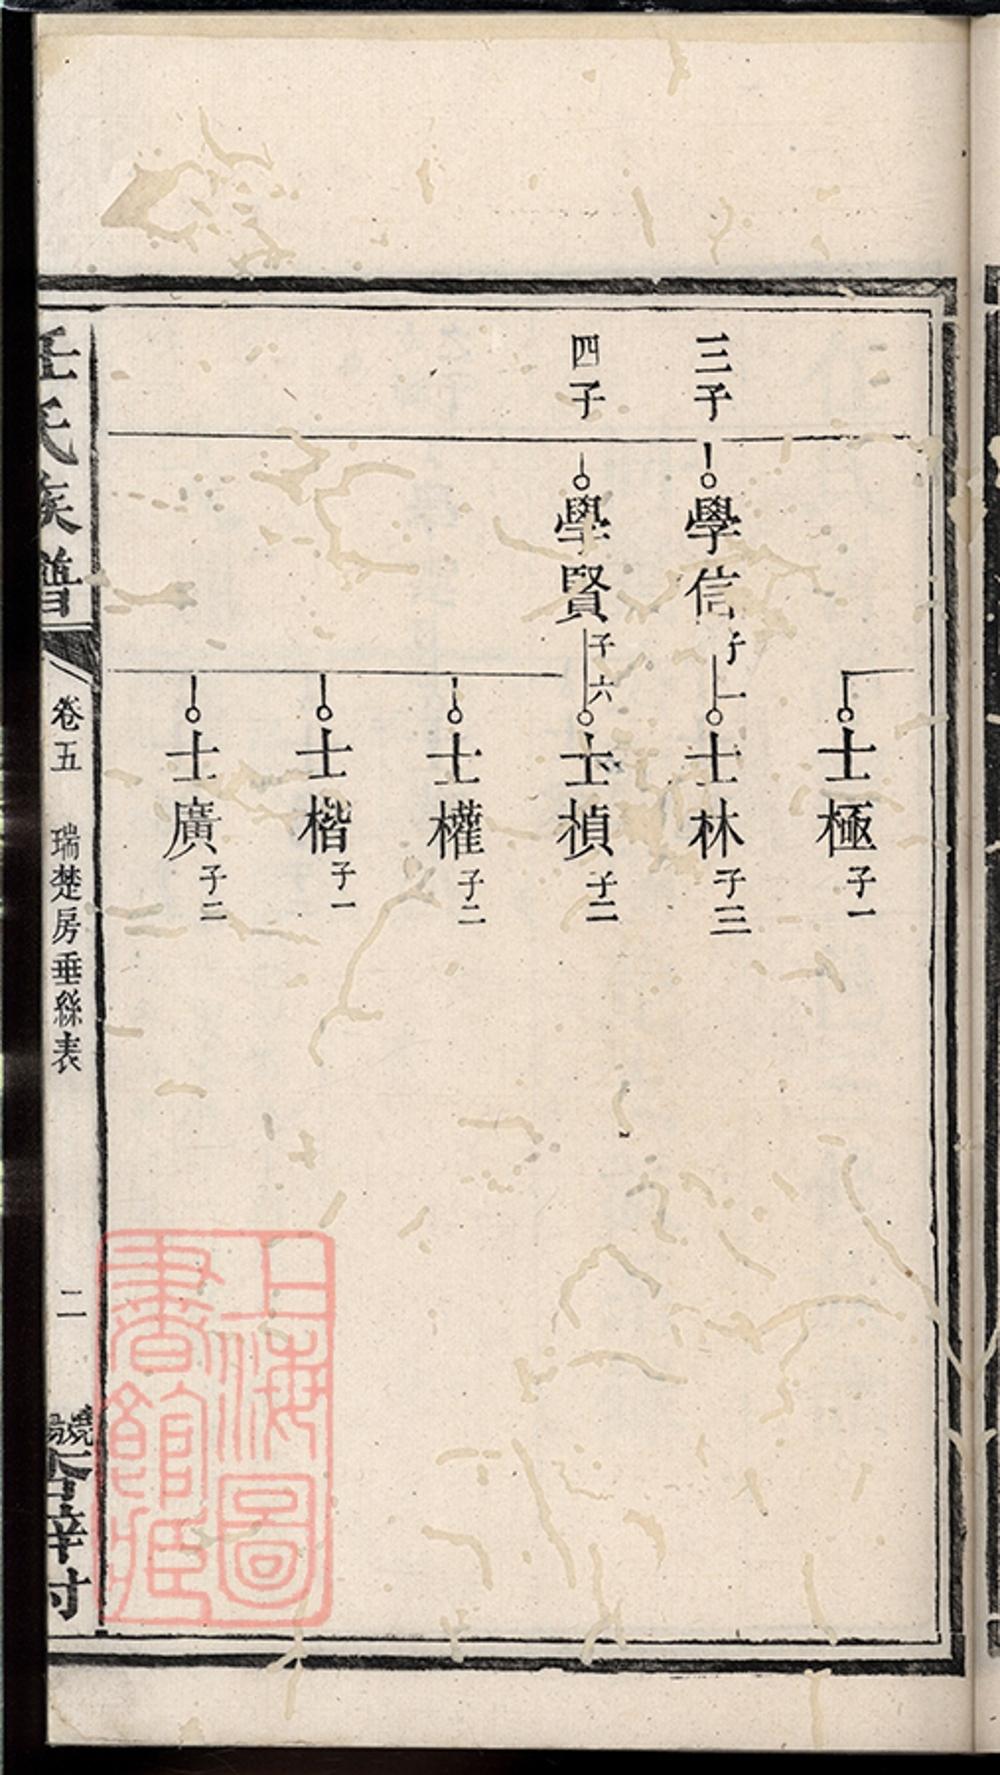 三子
四子
學信子一
學賢子六
士極子一
士林子三
士楨子二
士權子二
士楷子一
士廣子二
氏族譜
卷五
瑞楚房垂絲表
二
上海圖
書館藏